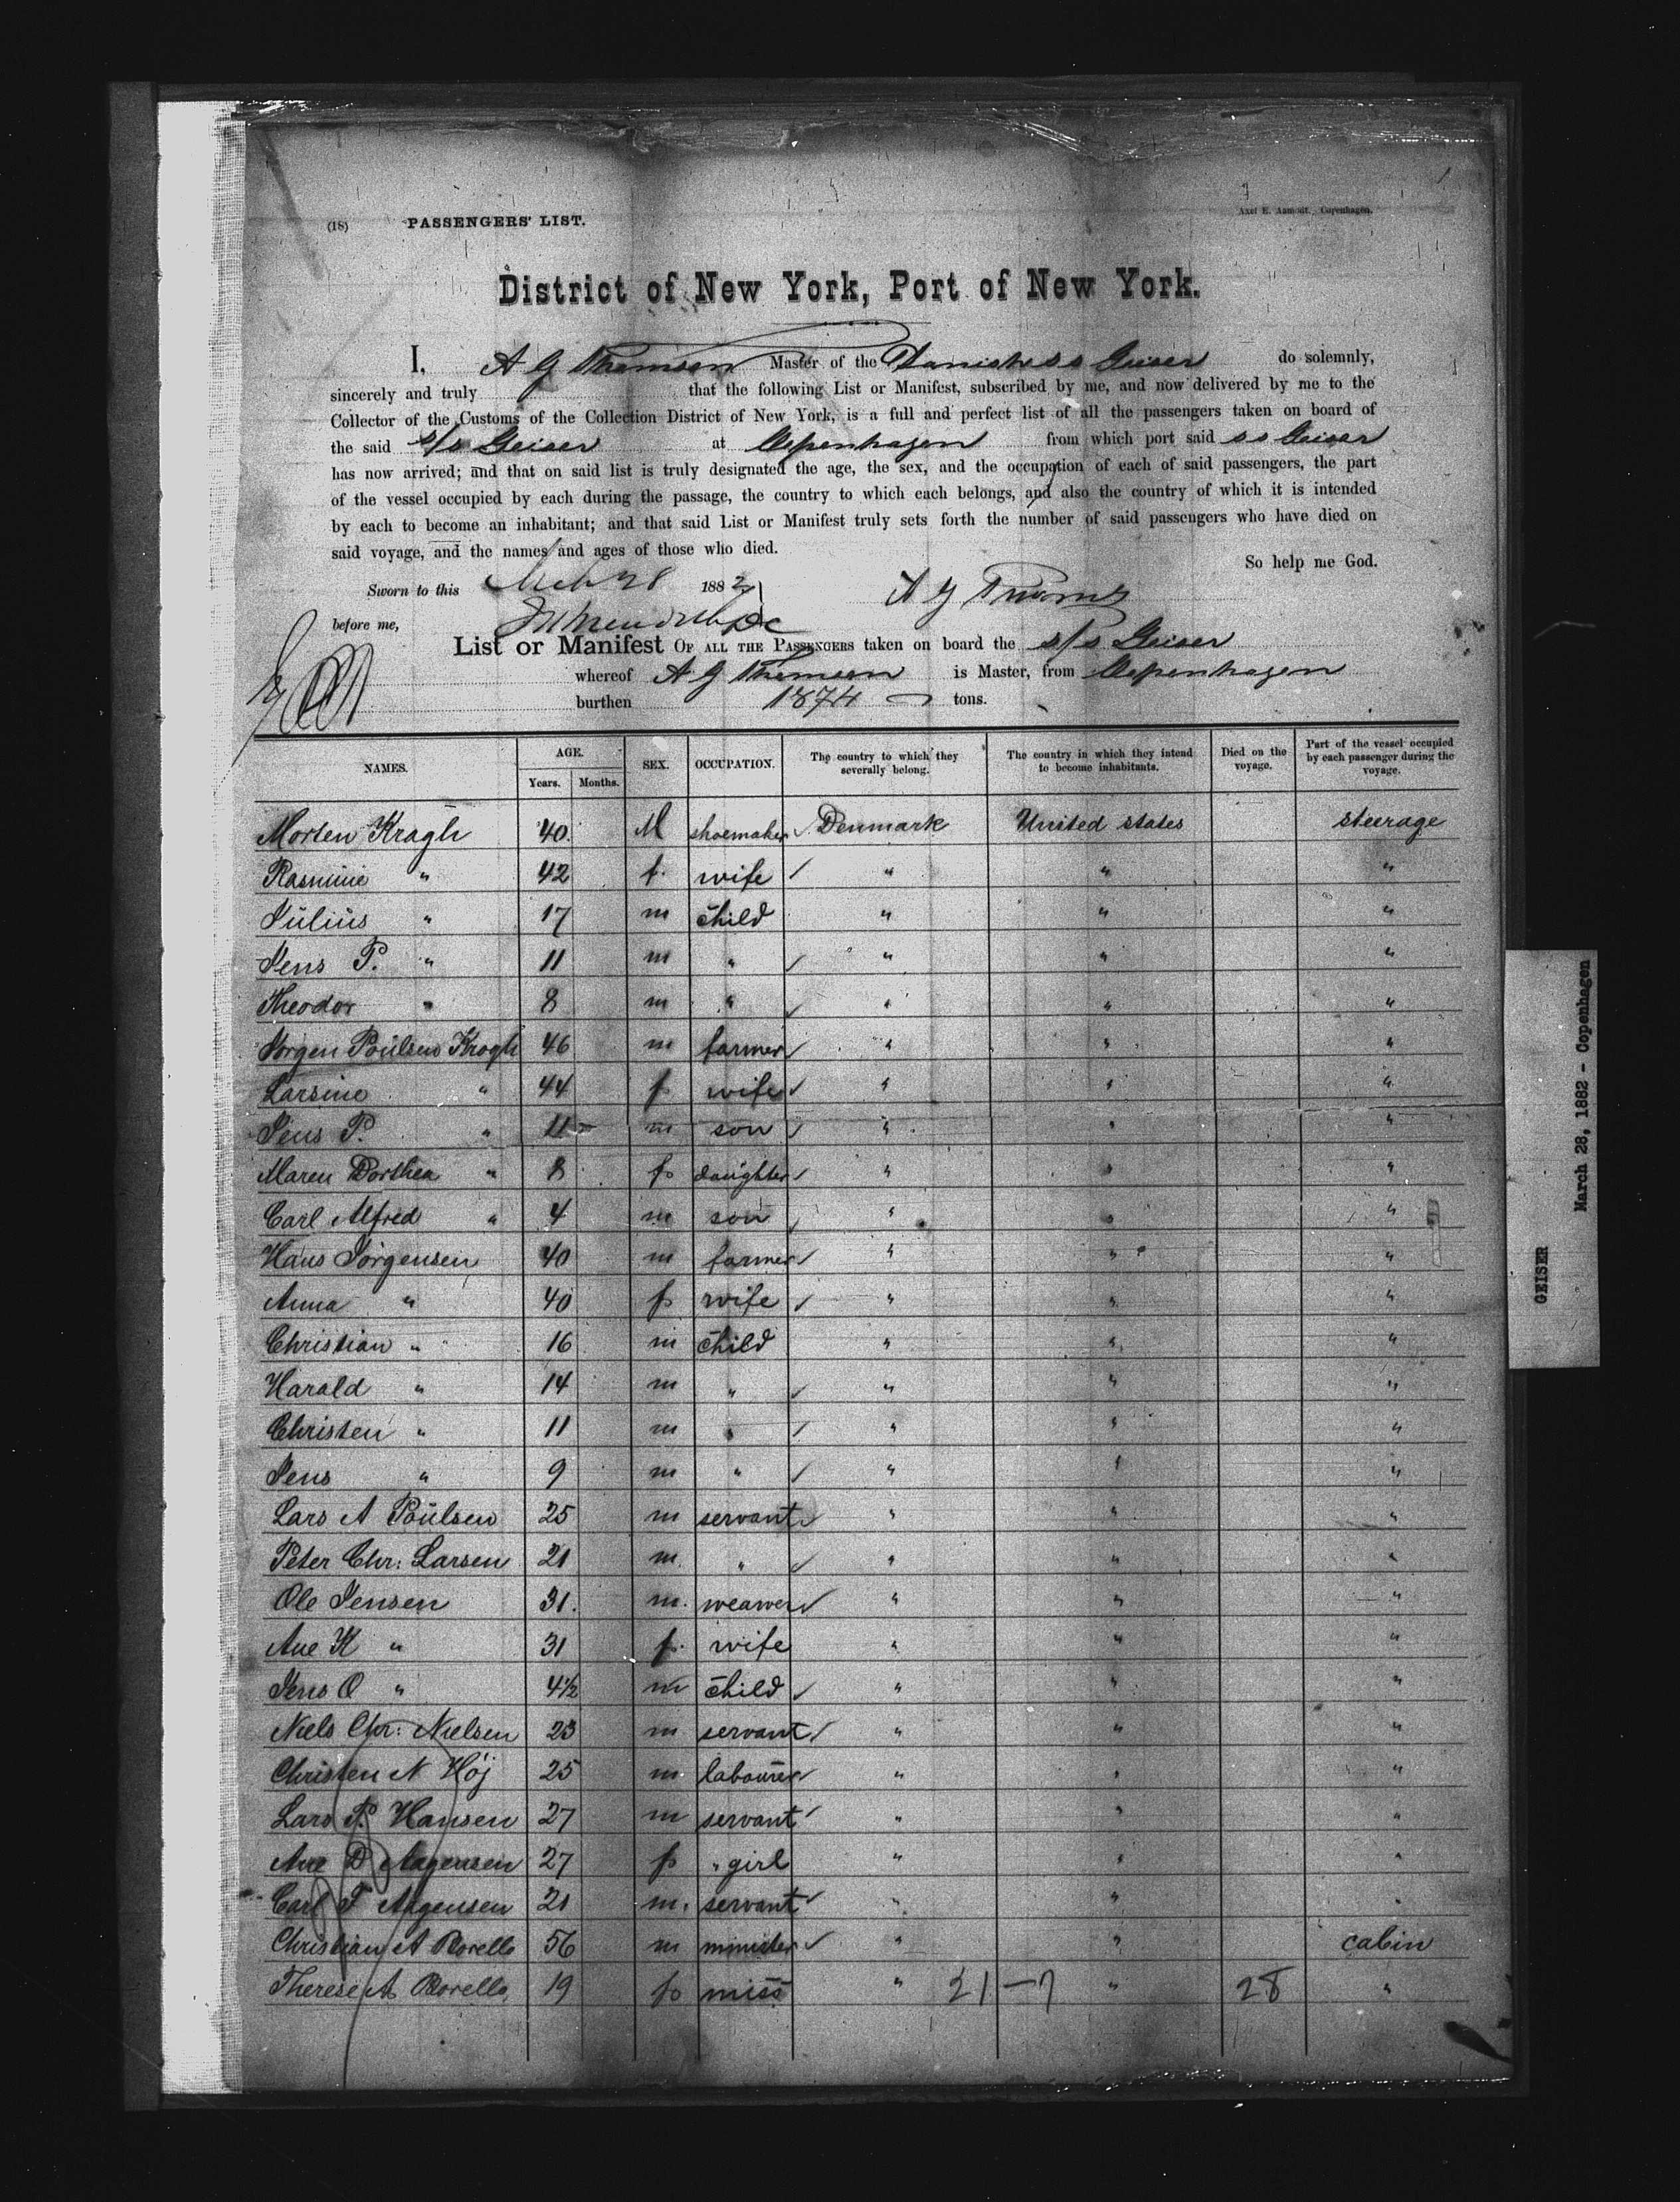 (18) PASSENGERS' LIST.
Axel E. Aamodt, Copenhagen.
District of New York, Port of New York.
I, A G Thomsen Master of the Danish s s Geiser do solemnly,
sincerely and truly that the following List or Manifest, subscribed by me, and now delivered by me to the
Collector of the Customs of the Collection District of New York, is a full and perfect list of all the passengers taken on board of
the said s/s Geiser at Copenhagen from which port said s s Geiser
has now arrived; and that on said list is truly designated the age, the sex, and the occupation of each of said passengers, the part
of the vessel occupied by each during the passage, the country to which each belongs, and also the country of which it is intended
by each to become an inhabitant; and that said List or Manifest truly sets forth the number of said passengers who have died on
said voyage, and the names and ages of those who died.
So help me God.
Sworn to this Mch 28 1882 A G Thomsen
before me,
List or Manifest OF ALL THE PASSENGERS taken on board the s/s Geiser
whereof A G Thomsen is Master, from Copenhagen
burthen 1874 tons.
NAMES. AGE. Years. Months. SEX. OCCUPATION. The country to which they severally belong. The country in which they intend to become inhabitants. Died on the voyage. Part of the vessel occupied by each passenger during the voyage.
Morten Kragh 40 M shoemaker Denmark United states steerage
Rasmine " 42 f. wife " " "
Julius " 17 m child " " "
Jens P. " 11 m " " " "
Theodor " 8 m " " " "
Jörgen Poulsen Kragh 46 m farmer " " "
Larsine " 44 f wife " " "
Jens P. " 11 m son " " "
Maren Dorthea " 8 f daughter " " "
Carl Alfred " 4 m son " " "
Hans Jörgensen 40 m farmer " " "
Anna " 40 f wife " " "
Christian " 16 m child " " "
Harald " 14 m " " " "
Christen " 11 m " " " "
Jens " 9 m " " " "
Lars A Poulsen 25 m servant " " "
Peter Chr: Larsen 21 m. " " " "
Ole Jensen 31. m. weawer " " "
Ane K " 31 f. wife " " "
Jens O " 4½ m child " " "
Niels Chr: Nielsen 23 m servant " " "
Christen N Höj 25 m. labourer " " "
Lars P. Hansen 27 m servant " " "
Ane D Aagensen 27 f " girl " " "
Carl F Aagensen 21 m. servant " " "
Christian A Borello 56 m minister " " cabin
Therese A Borello 19 f miss " 21 - 7 " 28 "
March 28, 1882 - Copenhagen
GEISER